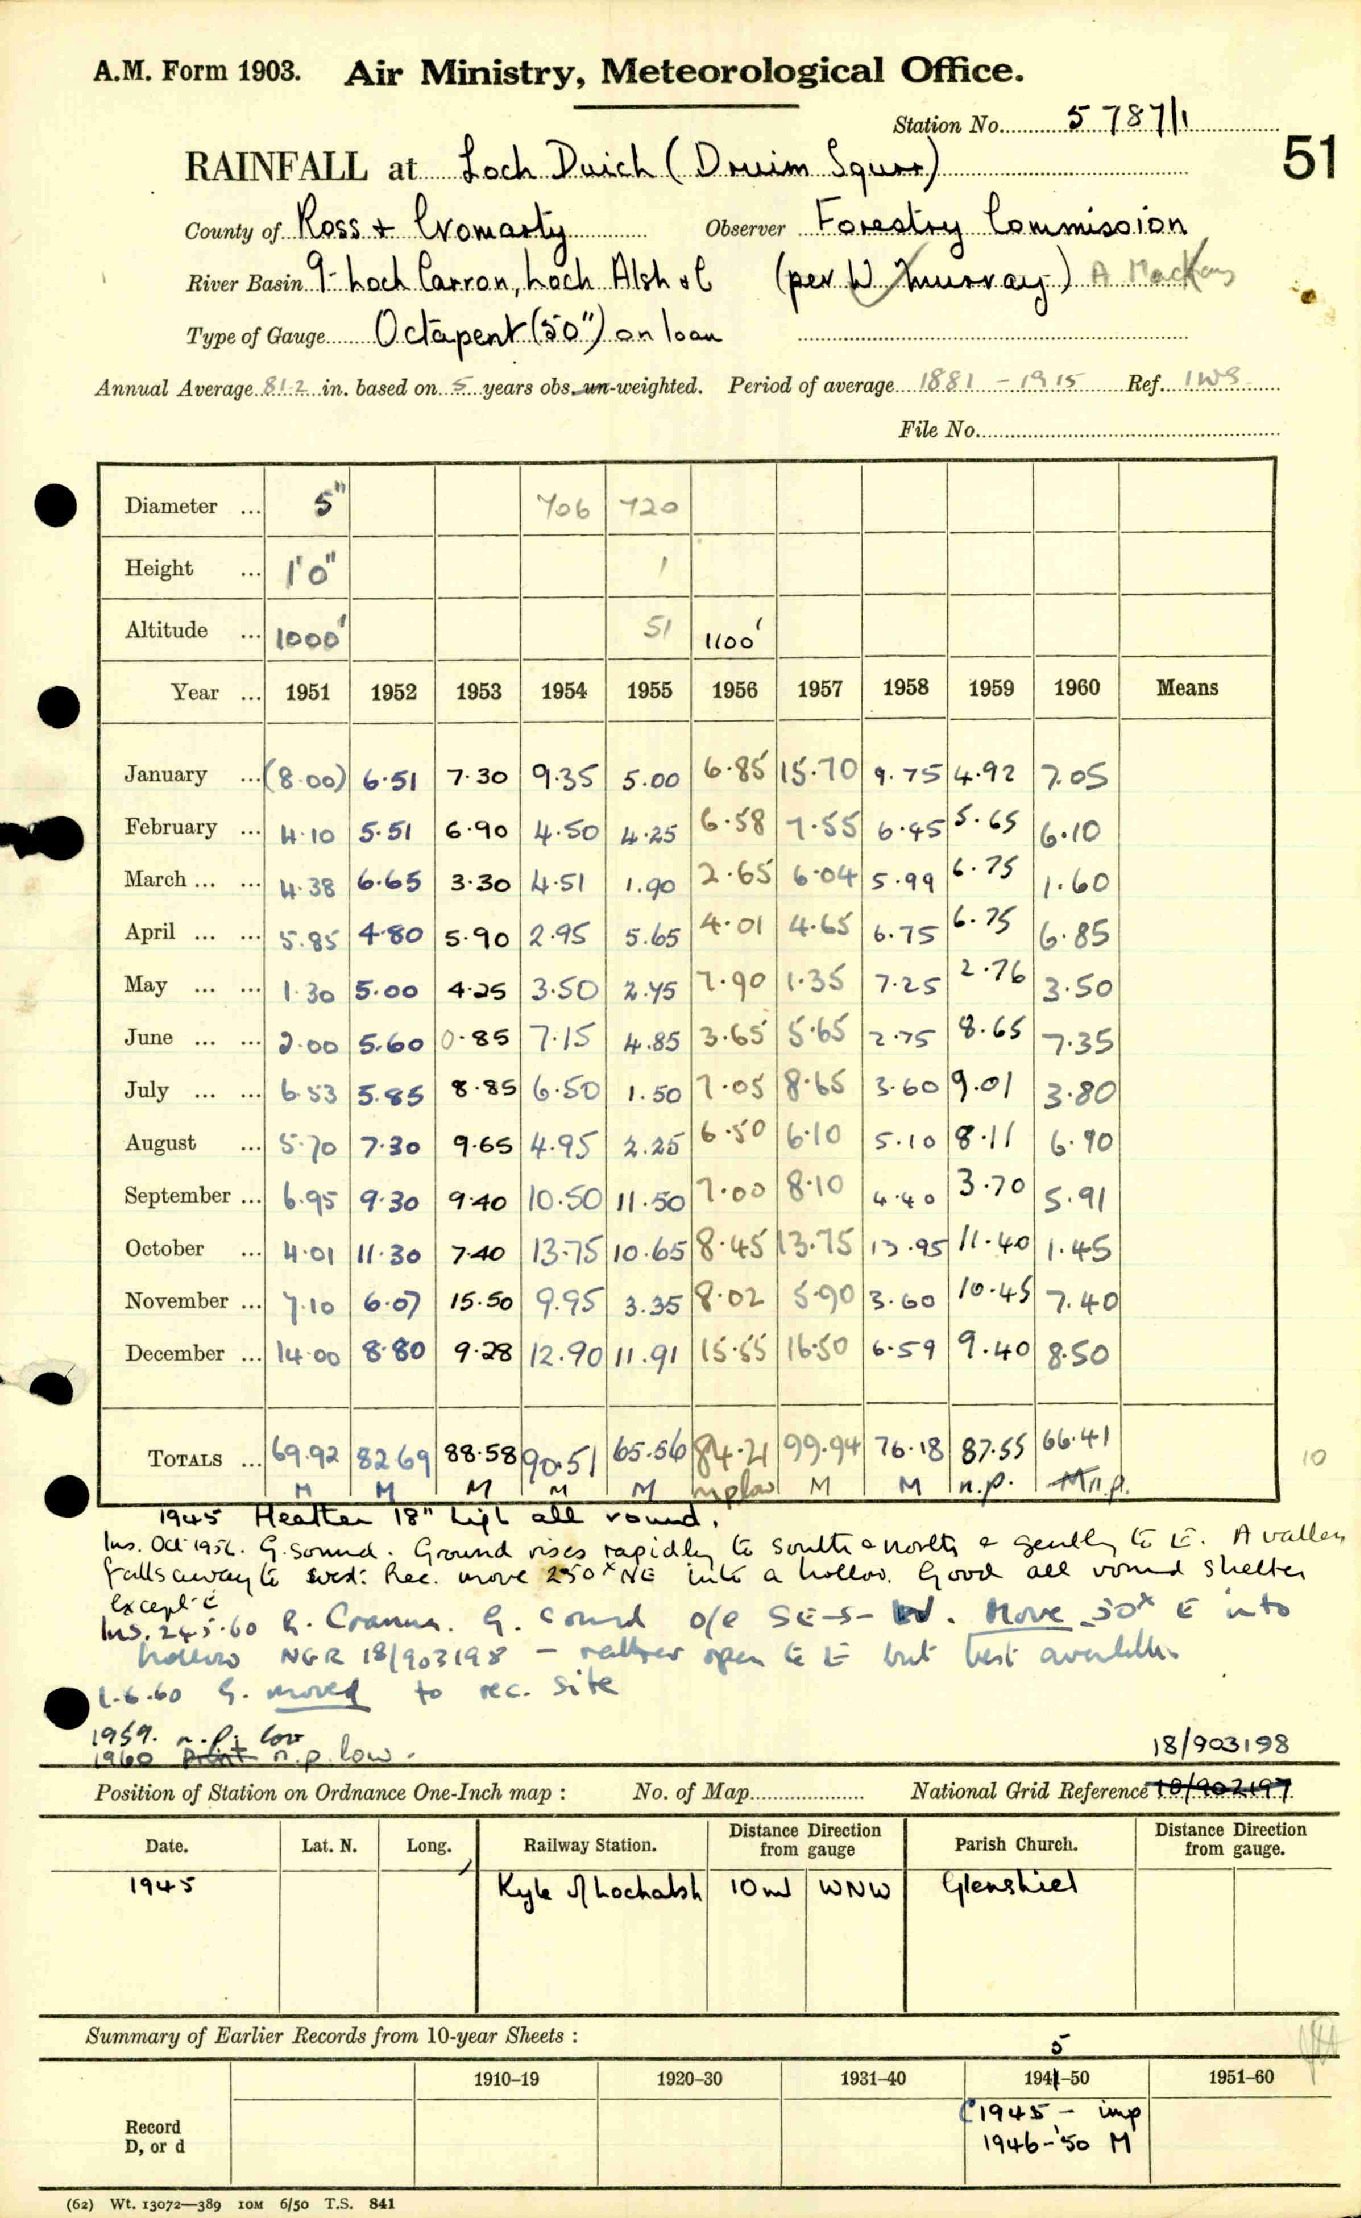 A.M. Form 1903. Air Ministry, Meteorological Office.
Station No. 5787/1
51
RAINFALL at Loch Duich (Druim Sgurr)
County of Ross + Cromarty Observer Forestry Commission
River Basin 9-Loch Carron, Loch Alsh & C (per W Murray) A Mackay
Type of Gauge Octapent (50") on loan
Annual Average 81.2 in. based on 5 years obs. un-weighted. Period of average 1881 - 1915 Ref. IWS
File No.
Diameter ... 5" 706 720
Height ... 1'0" 1
Altitude ... 1000' 51 1100'
Year ... 1951 1952 1953 1954 1955 1956 1957 1958 1959 1960 Means
January ... (8.00) 6.51 7.30 9.35 5.00 6.85 15.70 9.75 4.92 7.05
February ... 4.10 5.51 6.90 4.50 4.25 6.58 7.55 6.45 5.65 6.10
March ... ... 4.38 6.65 3.30 4.51 1.90 2.65 6.04 5.99 6.75 1.60
April ... ... 5.85 4.80 5.90 2.95 5.65 4.01 4.65 6.75 6.75 6.85
May ... ... 1.30 5.00 4.25 3.50 2.75 7.90 1.35 7.25 2.76 3.50
June ... ... 2.00 5.60 0.85 7.15 4.85 3.65 5.65 2.75 8.65 7.35
July ... ... 6.53 5.85 8.85 6.50 1.50 7.05 8.65 3.60 9.01 3.80
August ... 5.70 7.30 9.65 4.95 2.25 6.50 6.10 5.10 8.11 6.90
September ... 6.95 9.30 9.40 10.50 11.50 7.00 8.10 4.40 3.70 5.91
October ... 4.01 11.30 7.40 13.75 10.65 8.45 13.75 13.95 11.40 1.45
November ... 7.10 6.07 15.50 9.95 3.35 8.02 5.90 3.60 10.45 7.40
December ... 14.00 8.80 9.28 12.90 11.91 15.55 16.50 6.59 9.40 8.50
TOTALS ... 69.92 82.69 88.58 90.51 65.56 84.21 99.94 76.18 87.55 66.41
10
M M M M M nplow M M n.p. M n.p.
1945 Heather 18" high all round.
Ins. Oct 1956. G. sound. Ground rises rapidly to south & north & gently to E. A valley
falls away to west. Rec. move 250x NE into a hollow. Good all round shelter
except E
Ins. 24.5.60 R. Cranna. G. sound o/e SE-S-W. Move 50x E into
hollow NGR 18/903198 - rather open to E but best available.
1.6.60 G. moved to rec. site
1959. n.p. low
1960 n.p. low.
18/903198
Position of Station on Ordnance One-Inch map : No. of Map National Grid Reference 18/902197
Date. Lat. N. Long. Railway Station. Distance Direction from gauge Parish Church. Distance Direction from gauge.
1945 Kyle of Lochalsh 10ml WNW Glenshiel
Summary of Earlier Records from 10-year Sheets :
5
1910-19 1920-30 1931-40 1941-50 1951-60
Record
D, or d
(1945 - imp
1946-50 M
(62) Wt. 13072—389 10M 6/50 T.S. 841